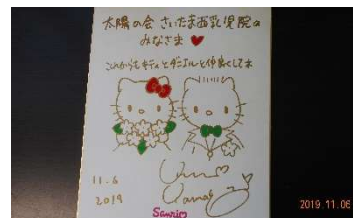 太陽の会 さいたま西乳児院の
みなさま
これからもキティとダニエルと仲良くしてネ
11.6
2019
Sanrio
2019.11.06